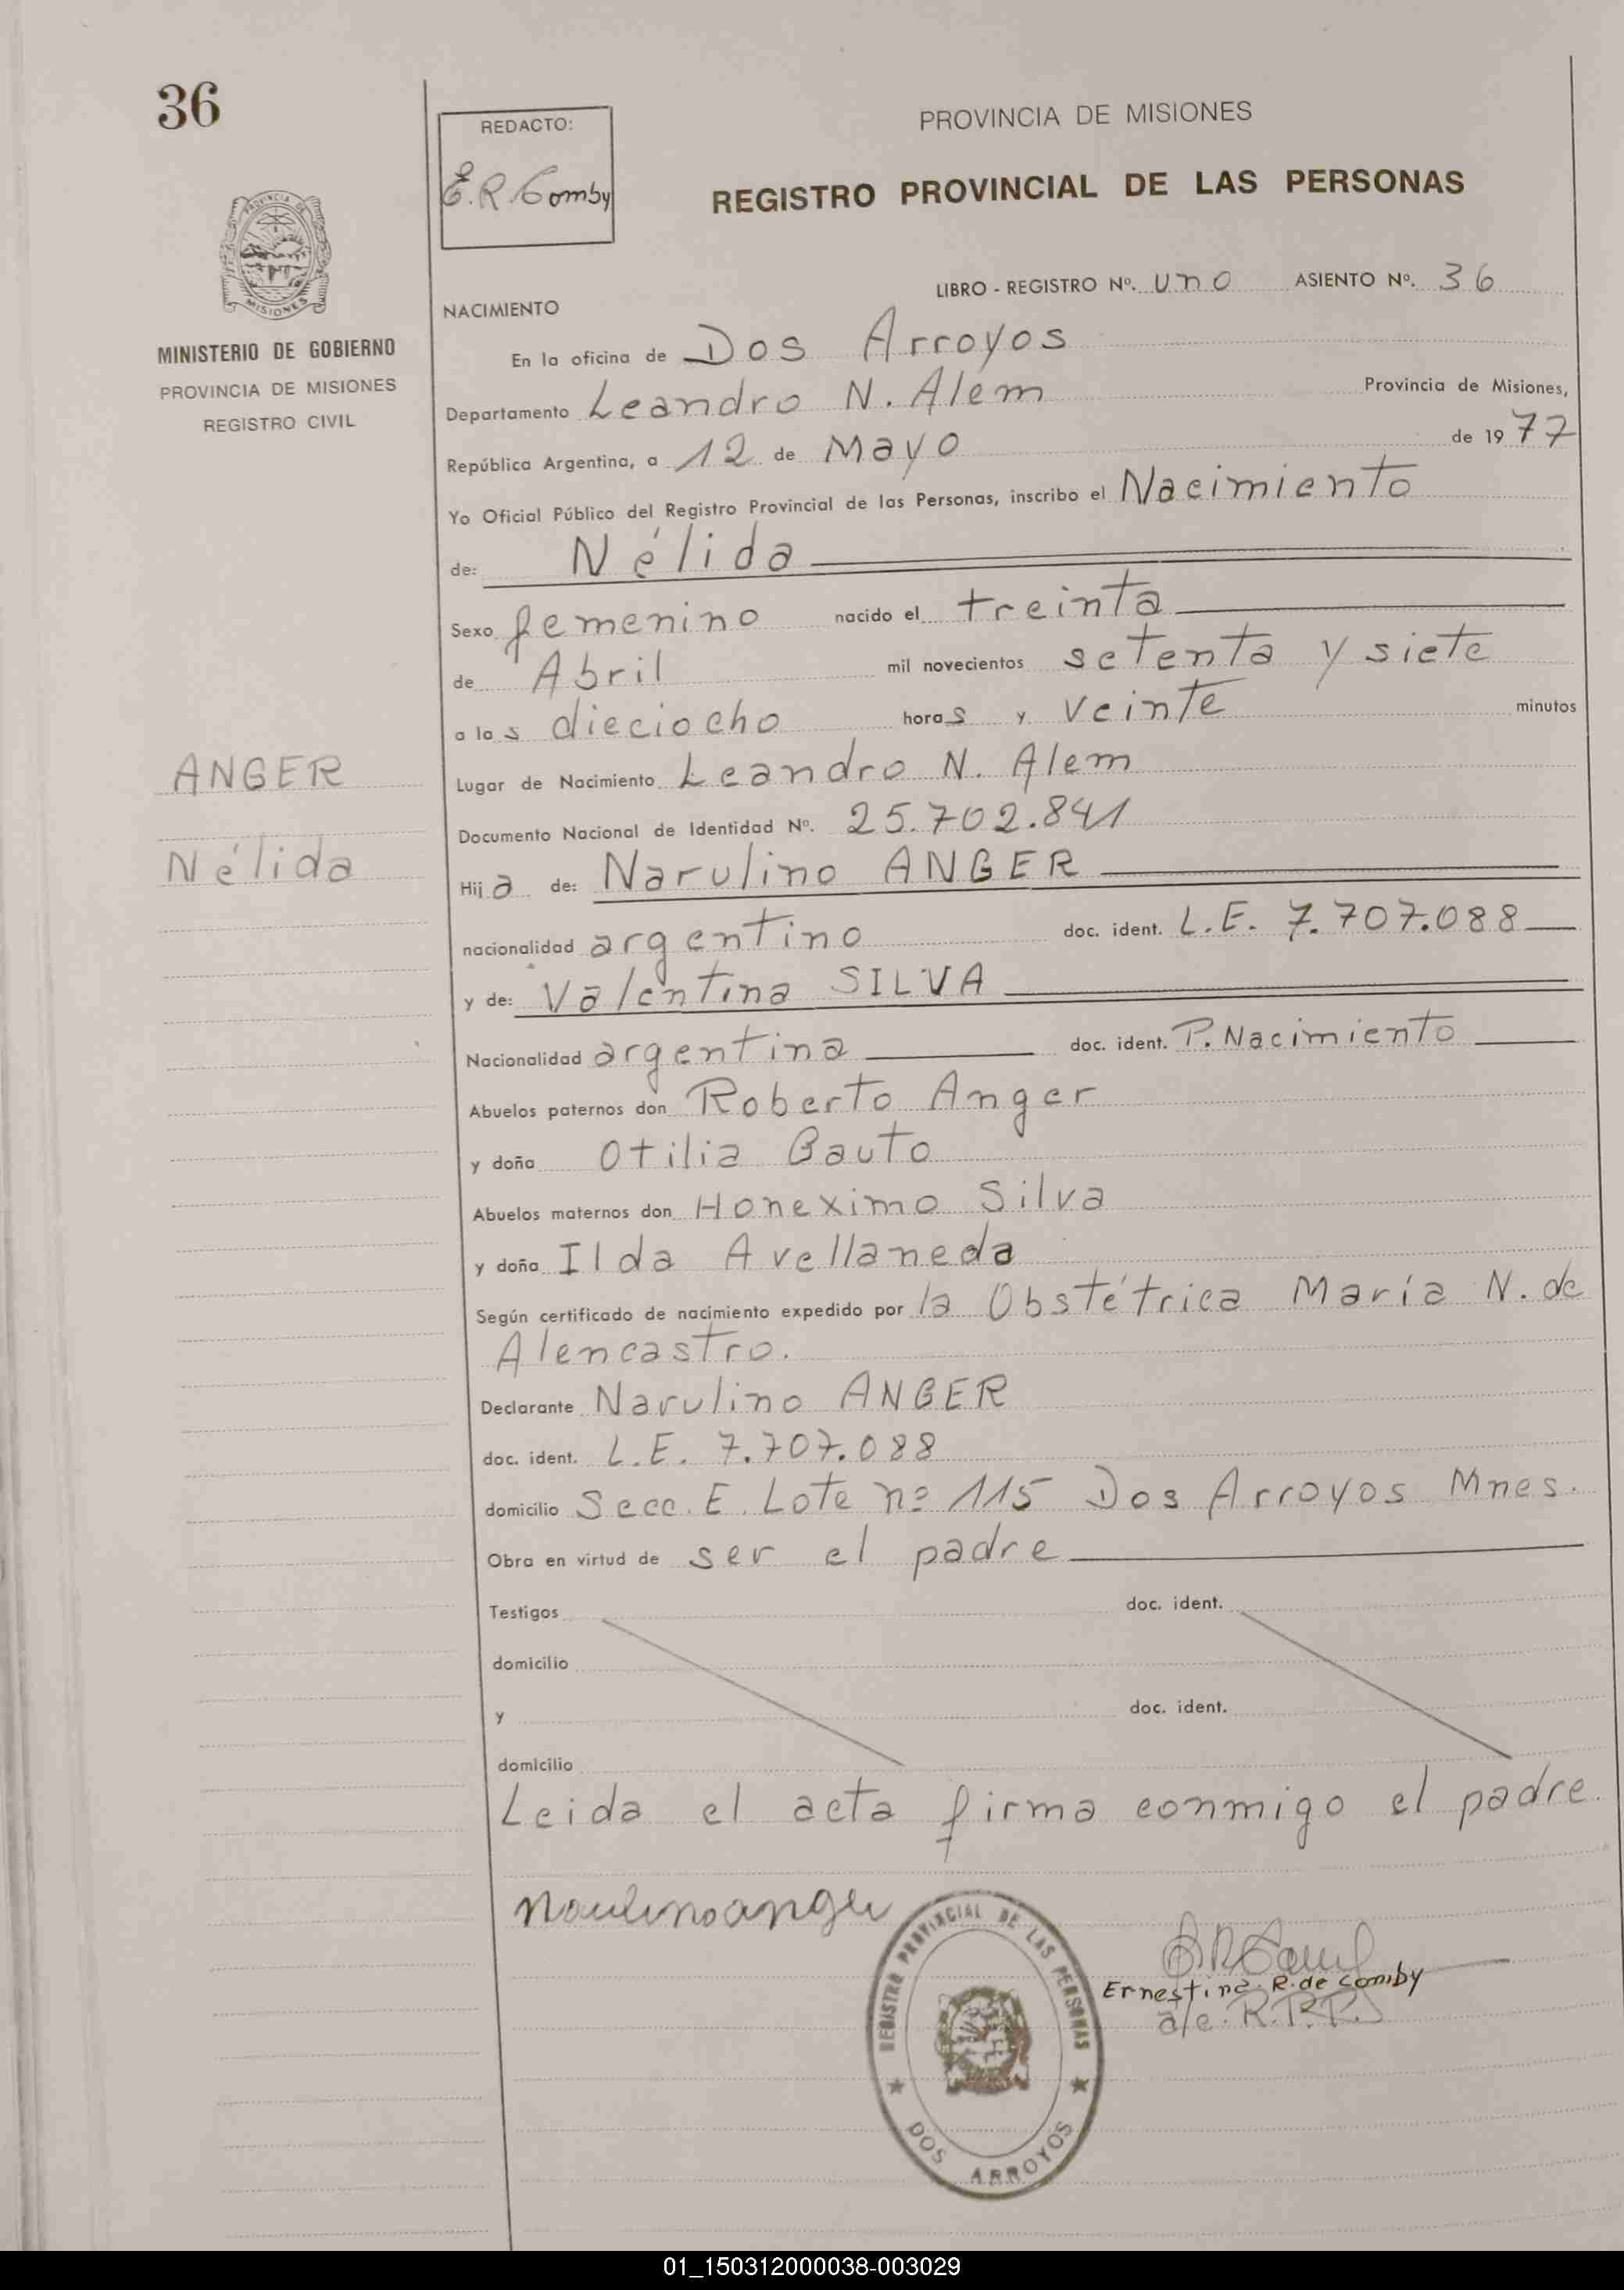 36
REDACTO:
E.R. Comby
PROVINCIA DE MISIONES
REGISTRO PROVINCIAL DE LAS PERSONAS
PROVINCIA DE
MISIONES
MINISTERIO DE GOBIERNO
PROVINCIA DE MISIONES
REGISTRO CIVIL
LIBRO - REGISTRO Nº. uno ASIENTO Nº. 36
NACIMIENTO
En la oficina de Dos Arroyos
Departamento Leandro N. Alem Provincia de Misiones,
República Argentina, a 12 de Mayo de 1977
Yo Oficial Público del Registro Provincial de las Personas, inscribo el Nacimiento
de: Nélida
Sexo femenino nacido el treinta
de Abril mil novecientos setenta y siete
a las dieciocho horas y veinte minutos
ANGER
Nélida
Lugar de Nacimiento Leandro N. Alem
Documento Nacional de Identidad Nº. 25.702.841
Hija de: Narulino ANGER
nacionalidad argentino doc. ident. L.E. 7.707.088
y de: Valentina SILVA
Nacionalidad argentina doc. ident. P. Nacimiento
Abuelos paternos don Roberto Anger
y doña Otilia Bauto
Abuelos maternos don Honeximo Silva
y doña Ilda Avellaneda
Según certificado de nacimiento expedido por la Obstétrica María N. de
Alencastro.
Declarante Narulino ANGER
doc. ident. L.E. 7.707.088
domicilio Secc. E. Lote nº 115 Dos Arroyos Mnes.
Obra en virtud de ser el padre
Testigos doc. ident.
domicilio
y doc. ident.
domicilio
Leida el acta firma conmigo el padre.
Naulino anger
REGISTRO PROVINCIAL DE LAS PERSONAS
DOS ARROYOS
Ernestina R. de Comby
a/c. R.P.P.
01_150312000038-003029